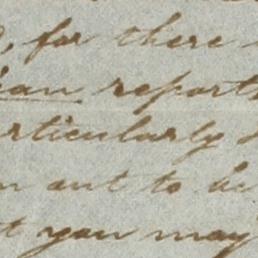 for there
reports
articularly
out to be
you may